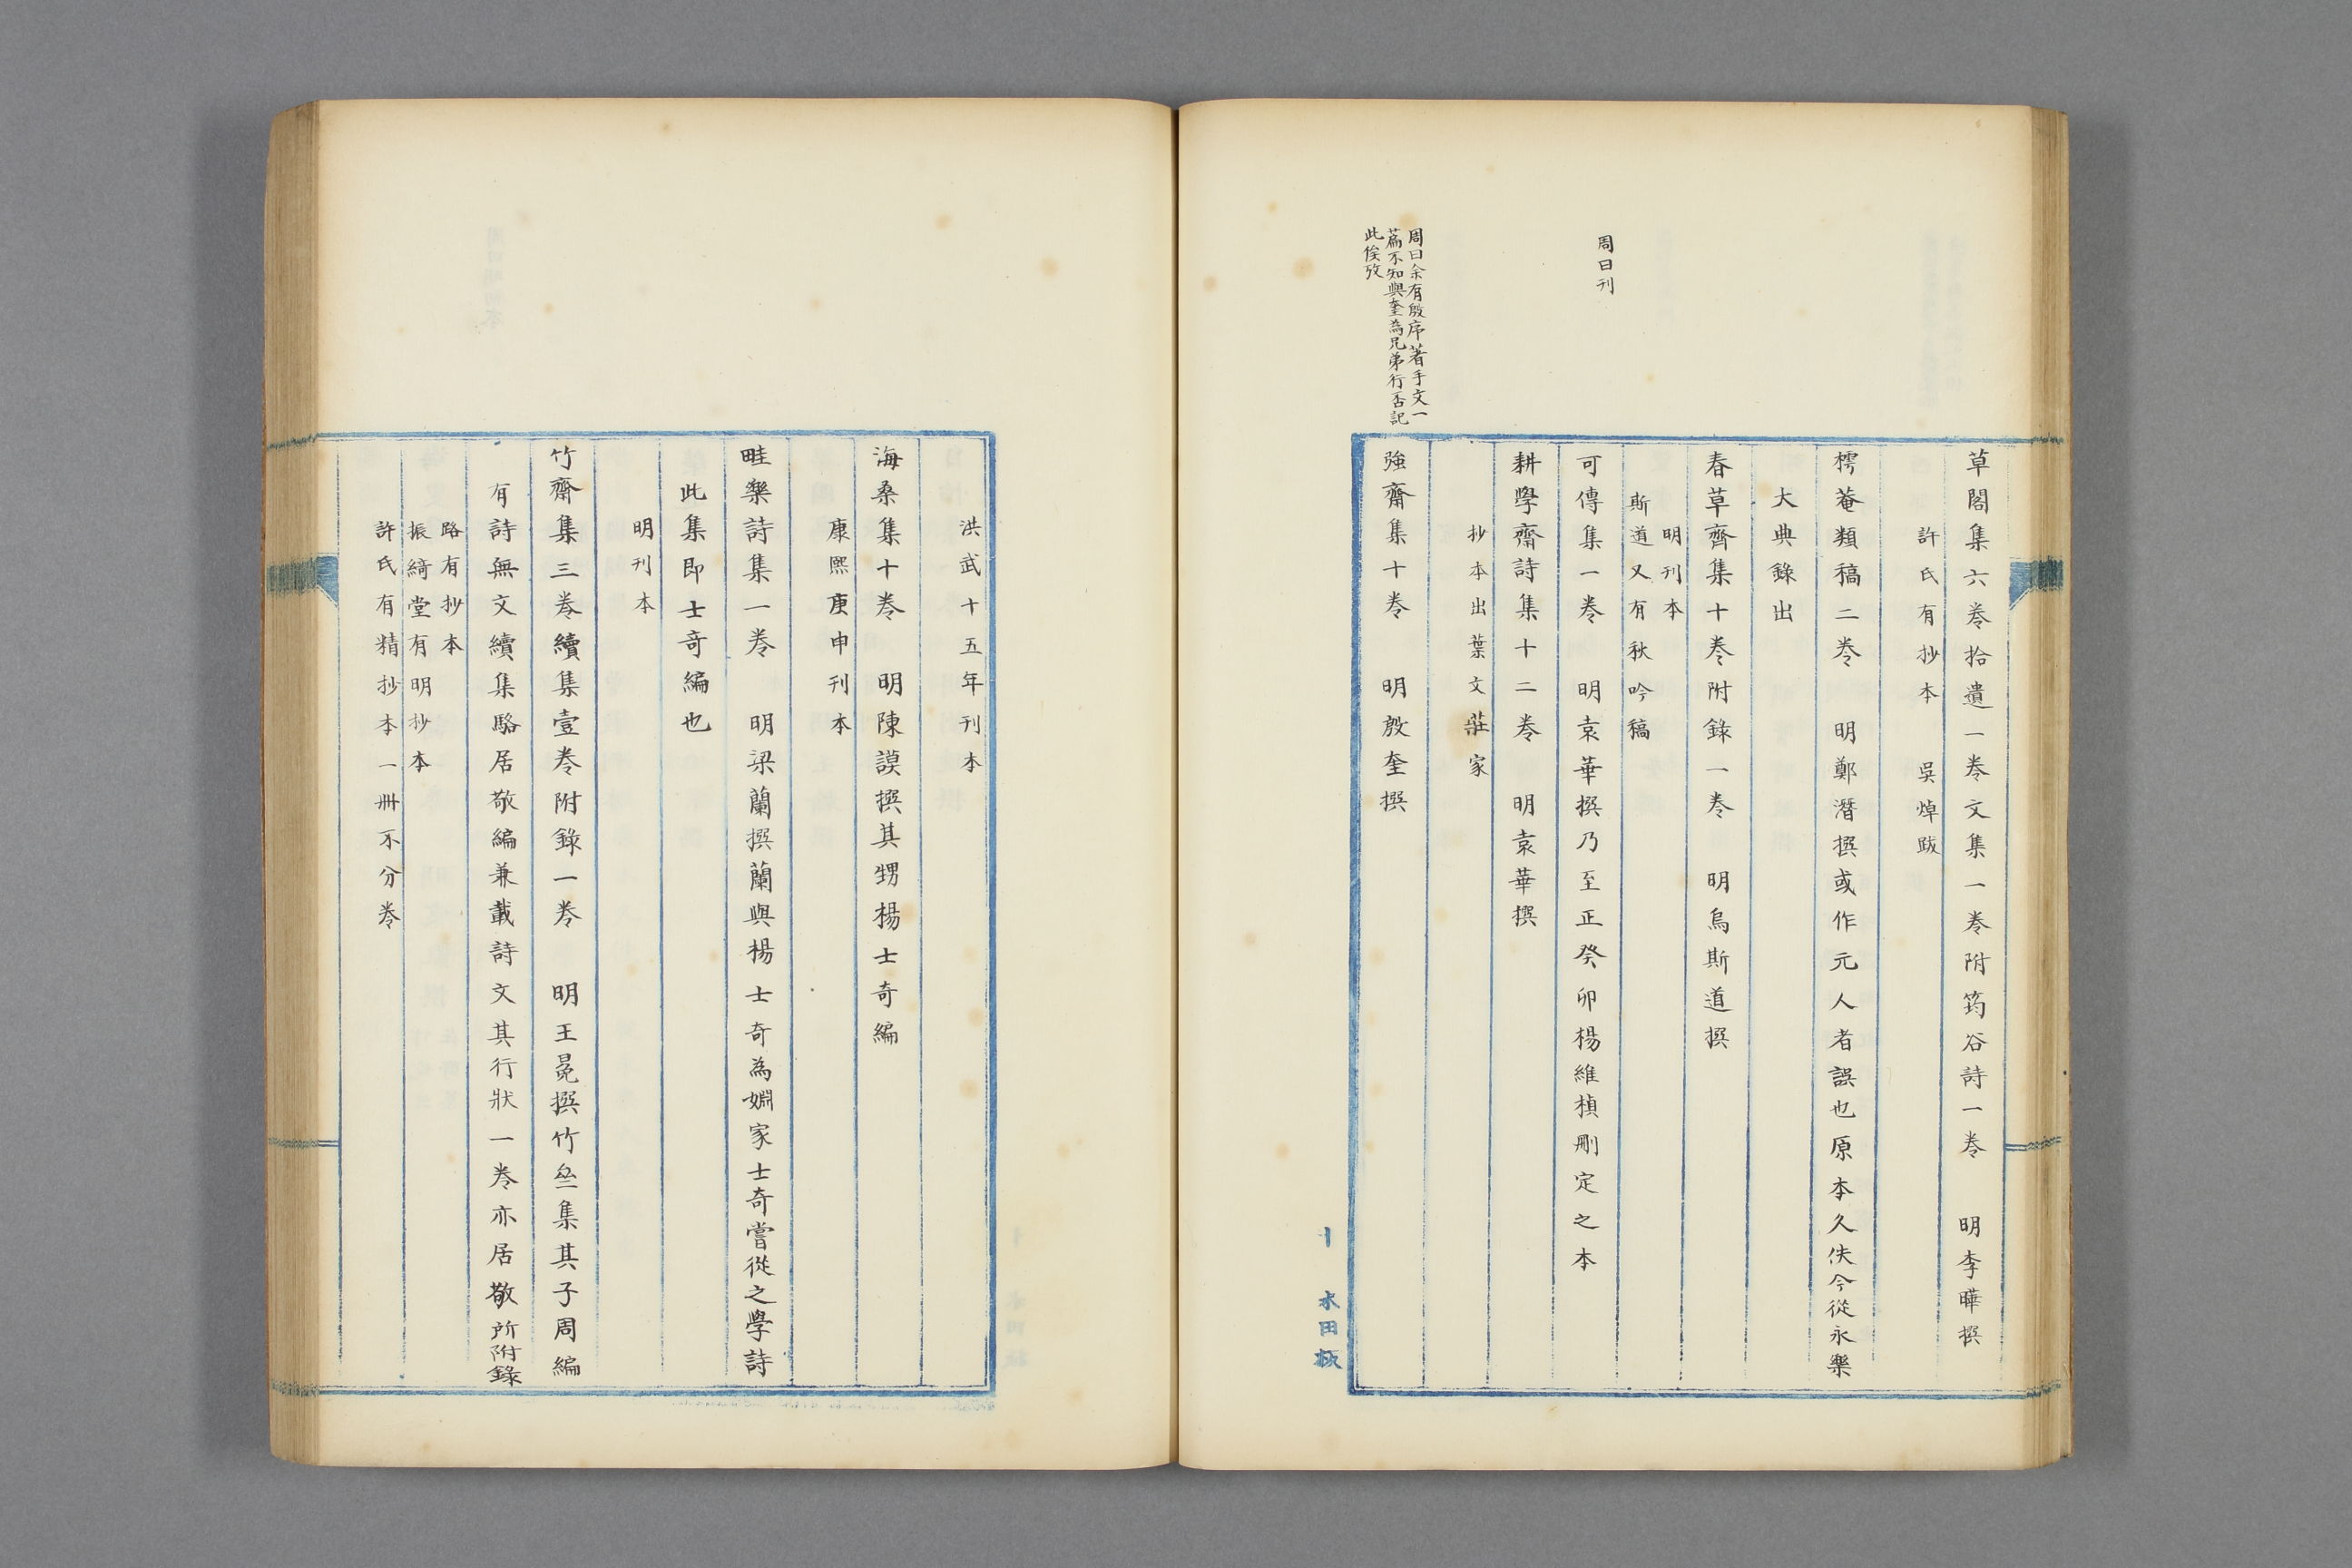 草閣集六卷拾遺一卷文集一卷附筠谷詩一卷　明李曄撰
許氏有抄本　吳焯跋
樗菴類稿二卷　明鄭潛撰或作元人者誤也原本久佚今從永樂
大典錄出
春草齋集十卷附錄一卷　明烏斯道撰
明刊本
斯道又有秋吟稿
周曰刊
可傳集一卷　明袁華撰乃至正癸卯楊維楨刪定之本
耕學齋詩集十二卷　明袁華撰
抄本出葉文莊家
周曰余有殷序著手文一
篇不知與奎為兄弟行否記
此俟攷
強齋集十卷　明殷奎撰
十　水田板
洪武十五年刊本
海桑集十卷　明陳謨撰其甥楊士奇編
康熙庚申刊本
畦樂詩集一卷　明梁蘭撰蘭與楊士奇為婣家士奇嘗從之學詩
此集即士奇編也
明刊本
竹齋集三卷續集壹卷附錄一卷　明王冕撰竹亝集其子周編
有詩無文續集駱居敬編兼載詩文其行狀一卷亦居敬所附錄
路有抄本
振綺堂有明抄本
許氏有精抄本一冊不分卷